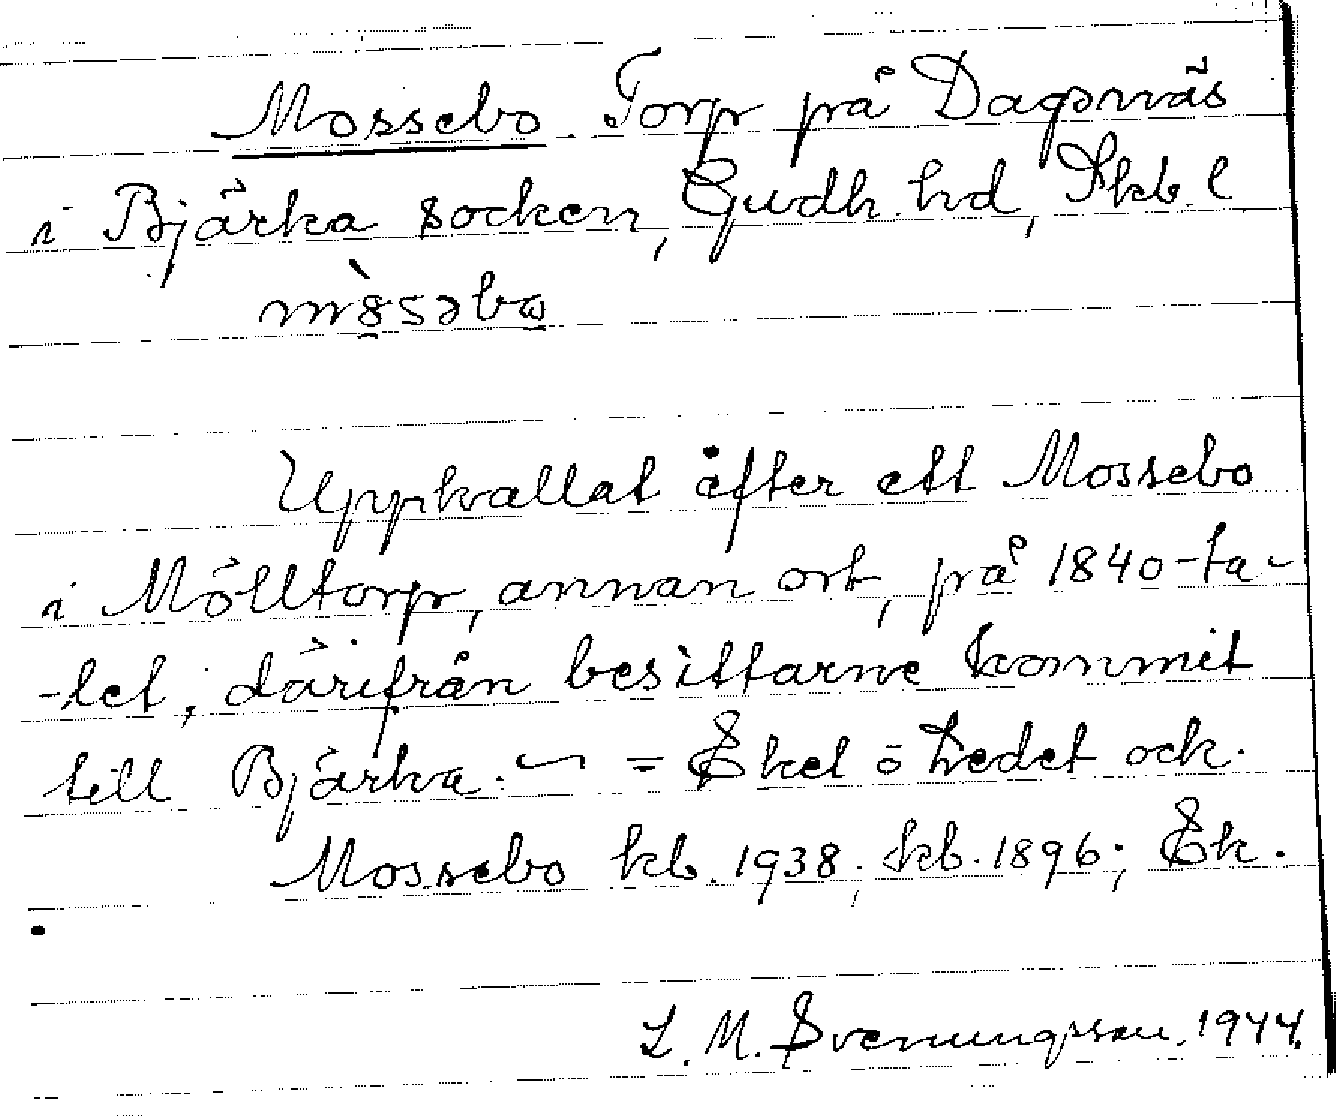 Mossebo. Torp på Dagsnäs
i Bjärka socken, Gudh. hd, Skb. l
Uppkallat äfter ett Mossebo
i Mölltorp, annan ort, på 1840-ta-
-let, därifrån besittarne kommit
till Bjärka. = Ekel ö Ledet ock.
Mossebo kb. 1938; kb. 1896; Ek.
L. M. Svenungsson. 1944.